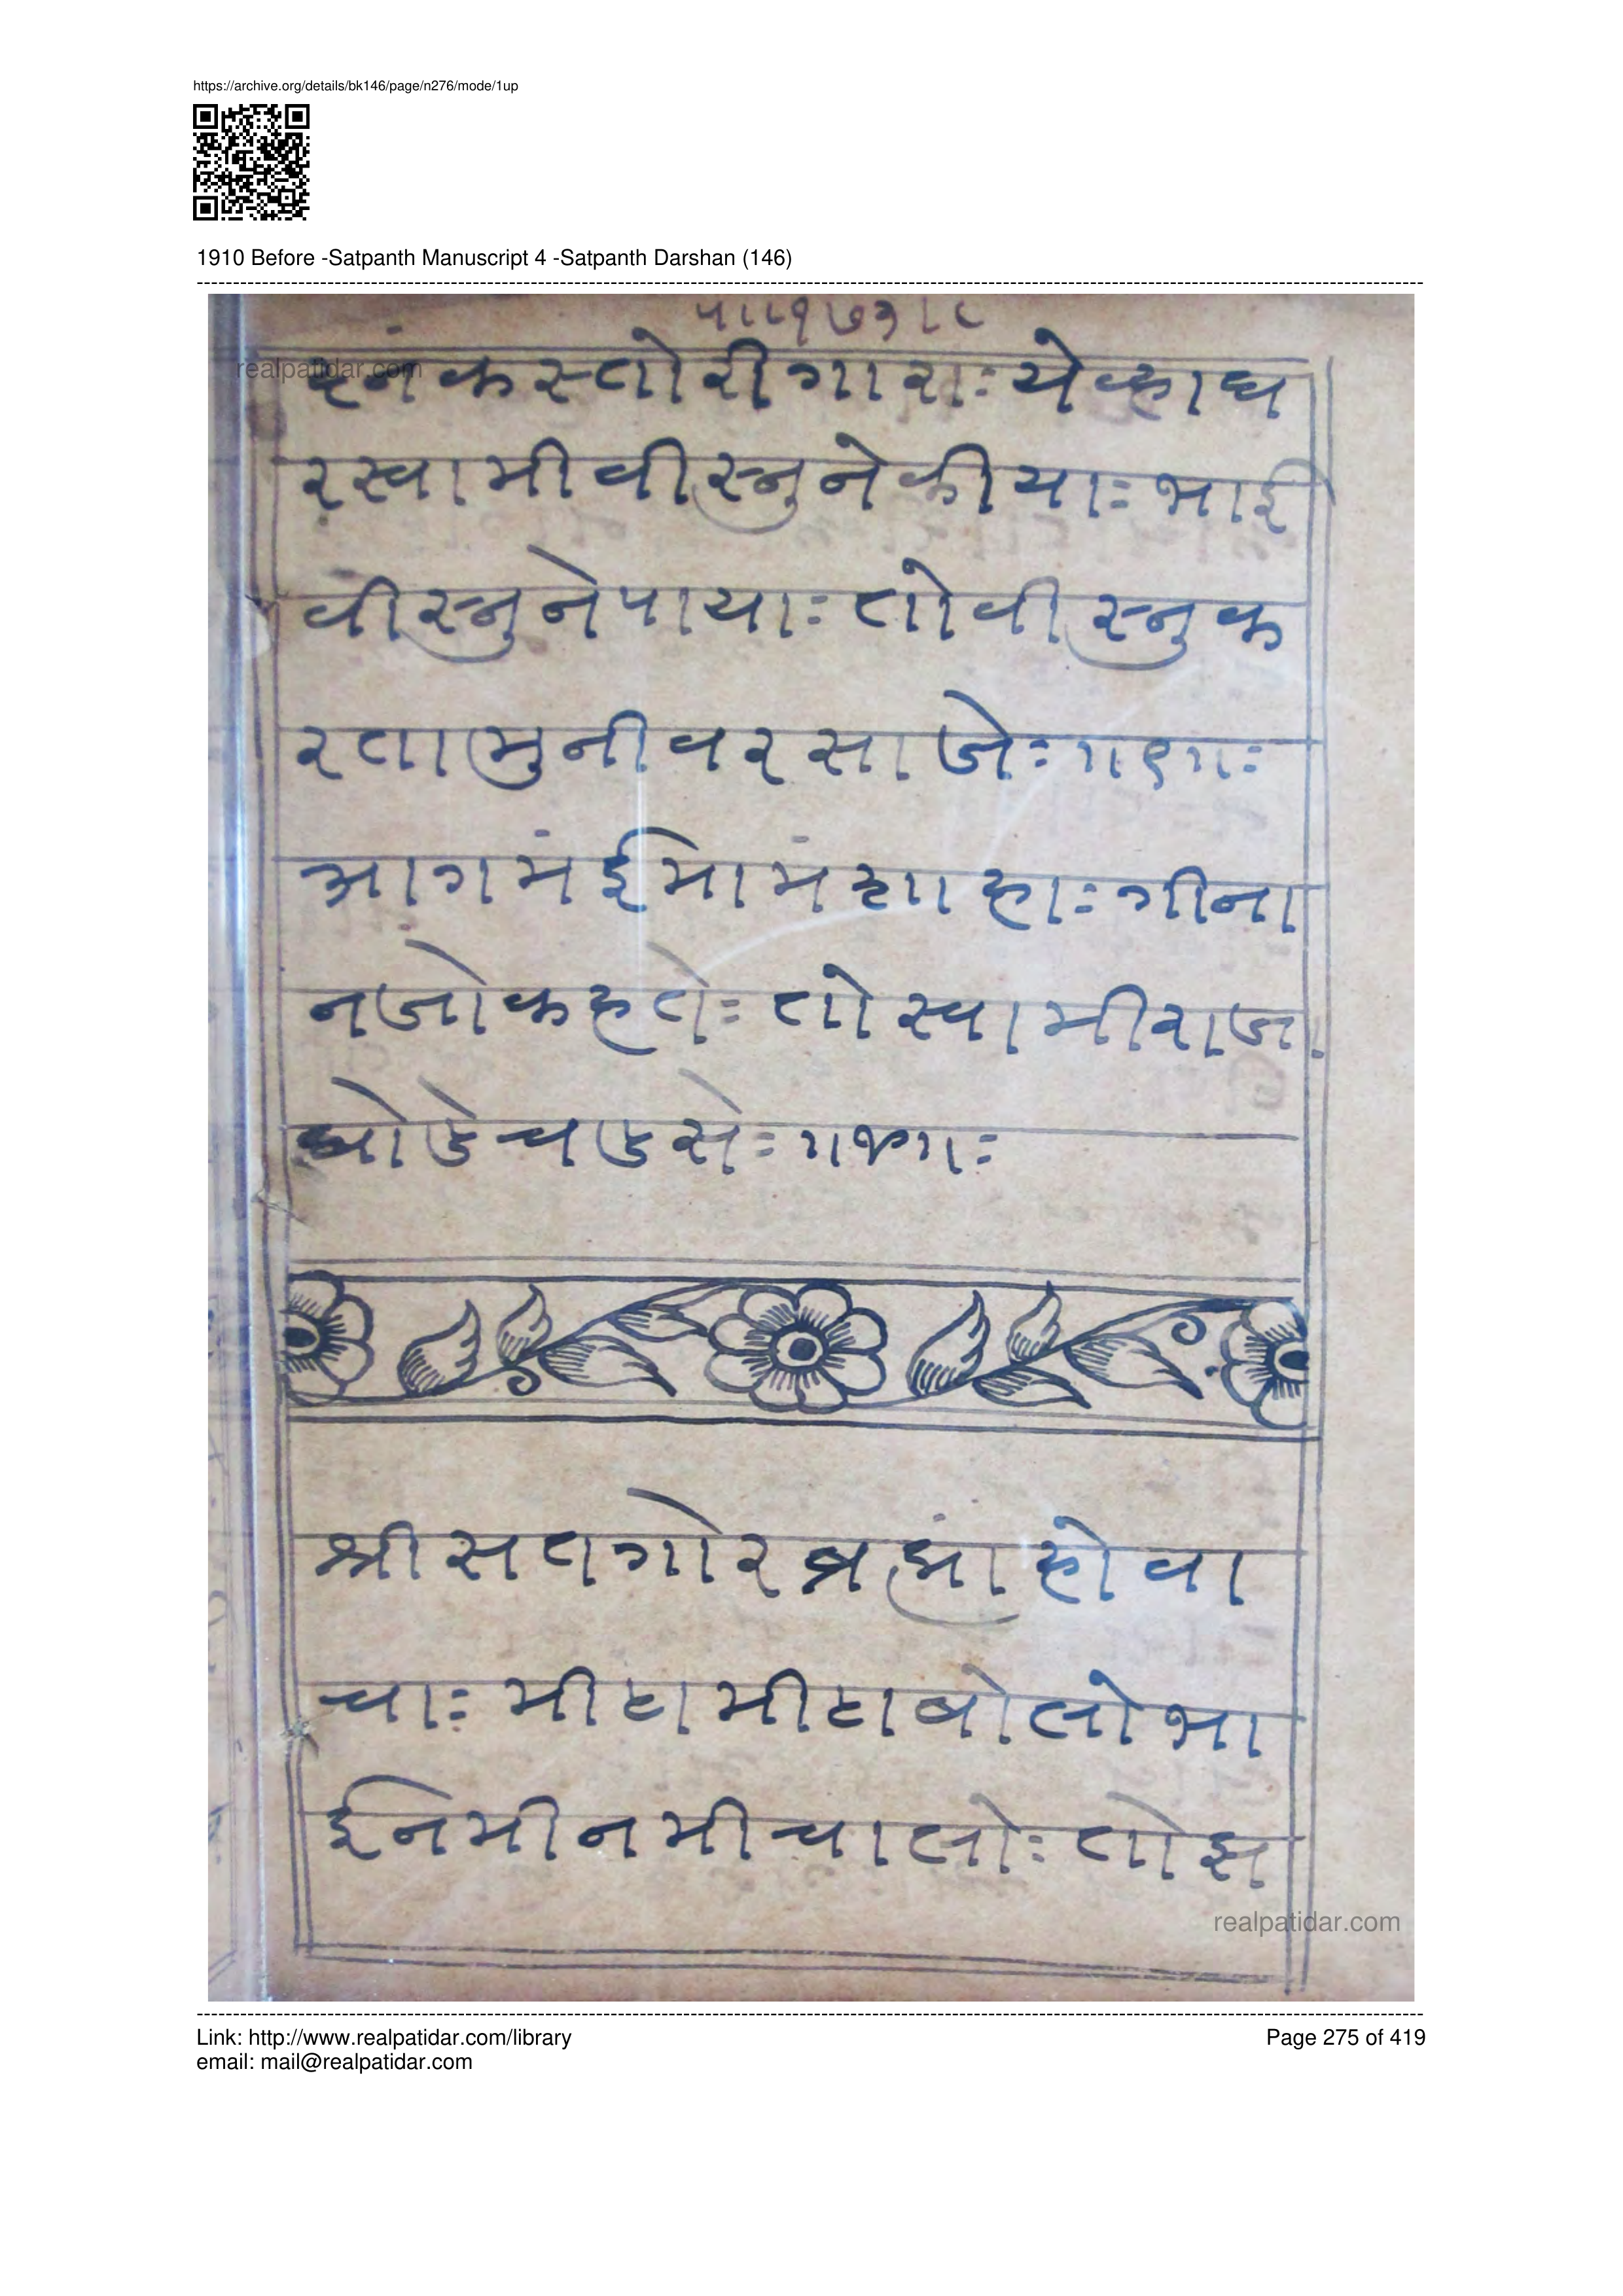 https://archive.org/details/bk146/page/n276/mode/1up
1910 Before -Satpanth Manuscript 4 -Satpanth Darshan (146)
पा।१७३।८
realpatidar.com
कस्तोरीगाराः येव्हाघ
रस्वामीवीस्नुनेकीयाः भाई
वीस्नुनेपायाः तोवीस्नुक
रतामुनीवरसाजेः
आगमंईमामंशाहाः गीना
नजोकहतेः तोस्वामीराजा
घोडेचडसेः
श्रीसतगोरब्रह्मांहोवा
चाः मीठामीठाबोलोभा
ईनमीनमीचालोः तोझ
realpatidar.com
Link: http://www.realpatidar.com/library
Page 275 of 419
email: mail@realpatidar.com